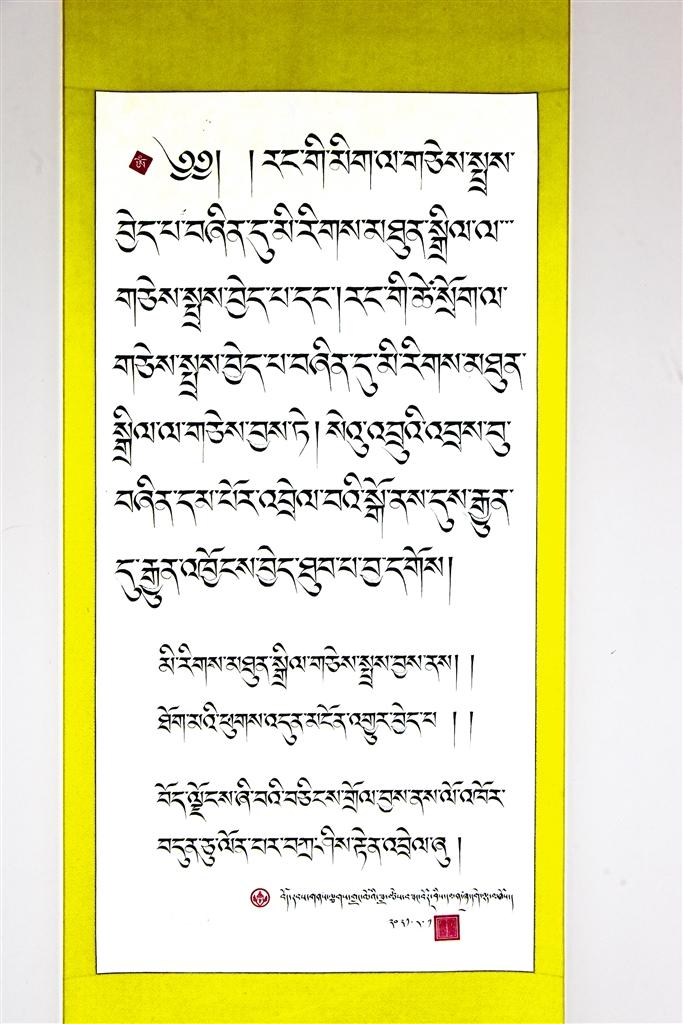 ༄༅། །རང་གི་མིག་ལ་གཅེས་སྤྲས་
བྱེད་པ་བཞིན་དུ་མི་རིགས་མཐུན་སྒྲིལ་ལ་་་
གཅེས་སྤྲས་བྱེད་པ་དང་། རང་གི་ཚེ་སྲོག་ལ་
གཅེས་སྤྲས་བྱེད་པ་བཞིན་དུ་མི་རིགས་མཐུན་
སྒྲིལ་ལ་གཅེས་བྱས་ཏེ། སེའུ་འབྲུའི་འབྲས་བུ་
བཞིན་དམ་པོར་འབྲེལ་བའི་སྒོ་ནས་དུས་རྒྱུན་
དུ་རྒྱུན་འཁྱོངས་བྱེད་ཐུབ་པ་བྱ་དགོས།
མི་རིགས་མཐུན་སྒྲིལ་གཅེས་སྤྲས་བྱས་ནས། །
ཐོག་མའི་ཕུགས་འདུན་མངོན་འགྱུར་བྱེད་པ །།
བོད་ལྗོངས་ཞི་བའི་བཅིངས་གྲོལ་བྱས་ནས་ལོ་འཁོར་
བདུན་ཅུ་ལོན་པར་བཀྲ་ཤིས་རྟེན་འབྲེལ་ཞུ །